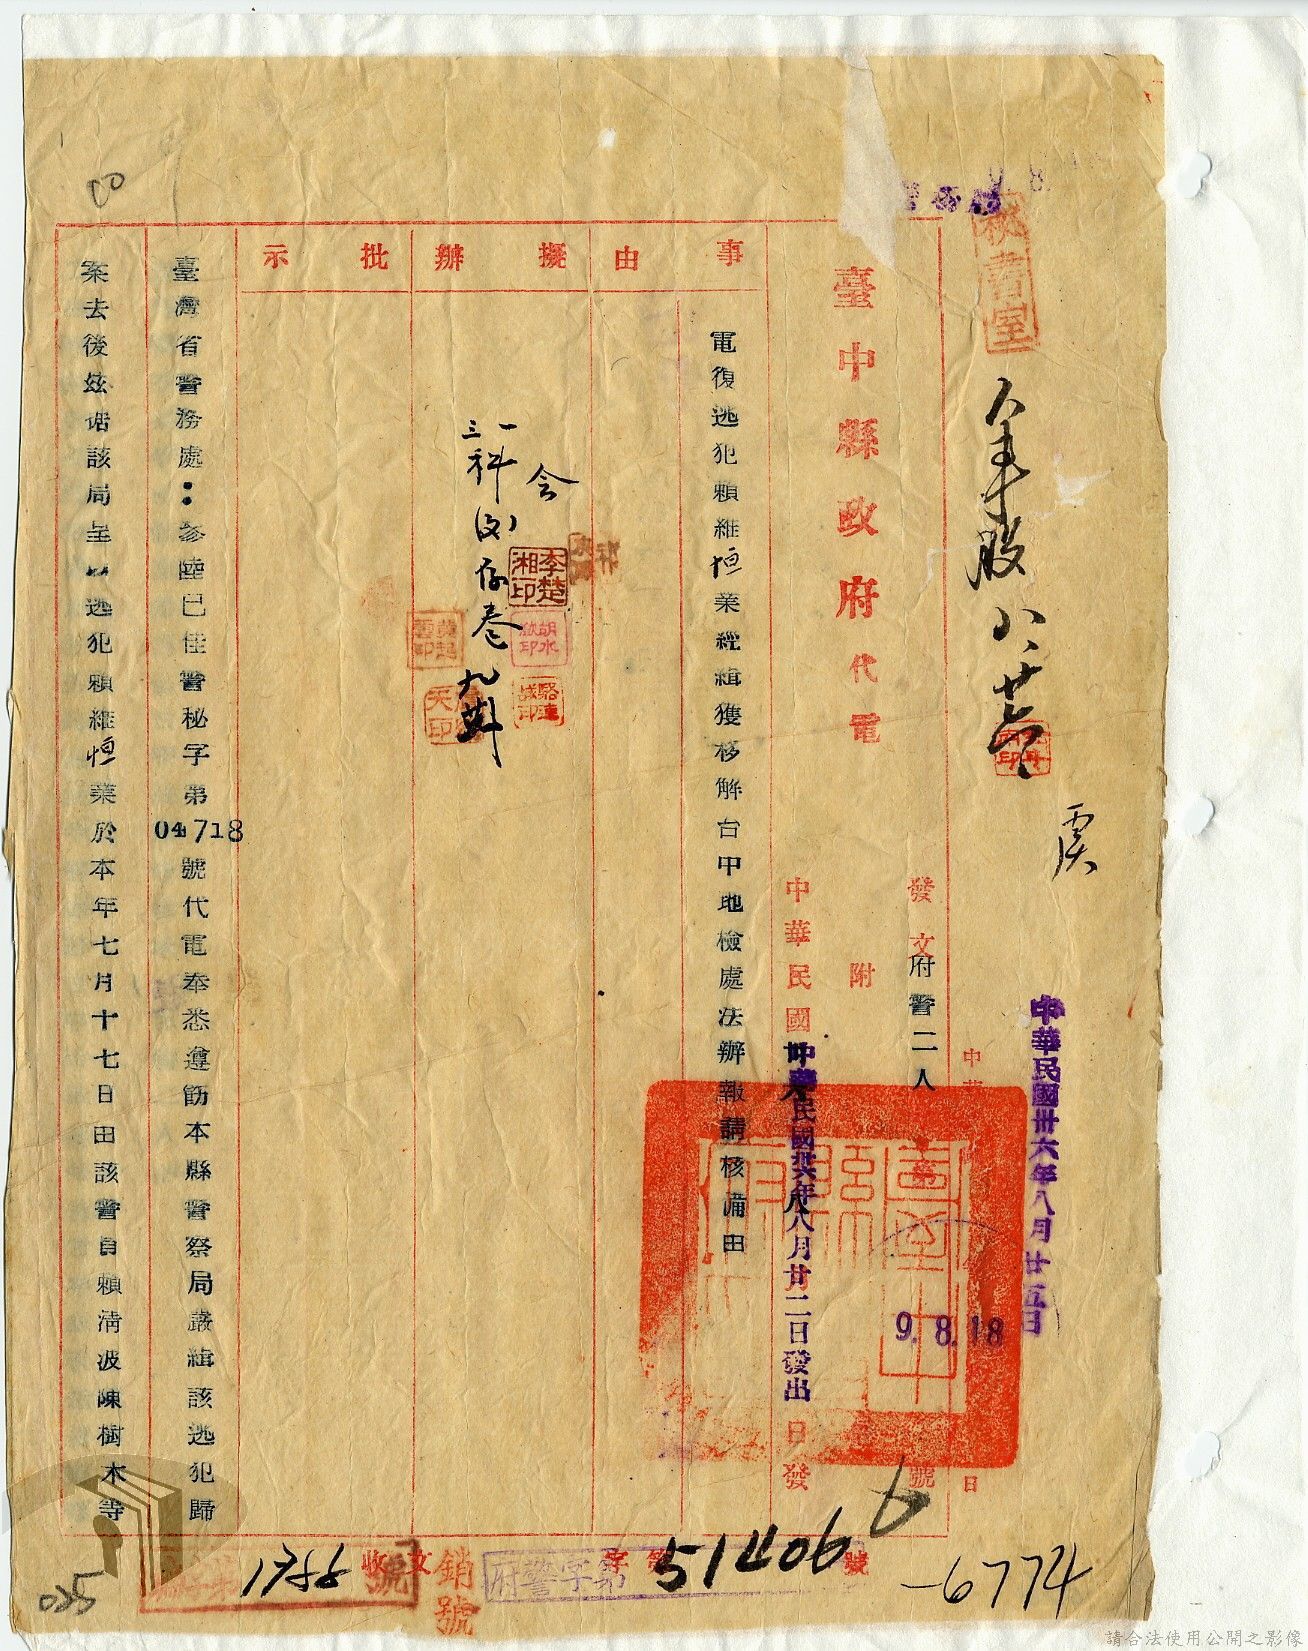 秘書室
人事股
中華民國卅六年八月廿五日
臺中縣政府代電
發文府警二人
第
號
附
中華民國
中華民國卅六年八月廿二日發出
日發
9.8.18
事由
電復逃犯賴維恒業經緝獲移解台中地檢處法辦報請核備由
擬辦
會
一
三科
存卷
李楚湘印
批示
臺灣省警務處：參陸巳佳警秘字第04718號代電奉悉遵飭本縣警察局嚴緝該逃犯歸
案去後茲据該局呈以逃犯賴維恒業於本年七月十七日由該警員賴清波陳樹木等
收文
號
1756
銷號
府警字第
字第51406號
-6774
025
請合法使用公開之影像